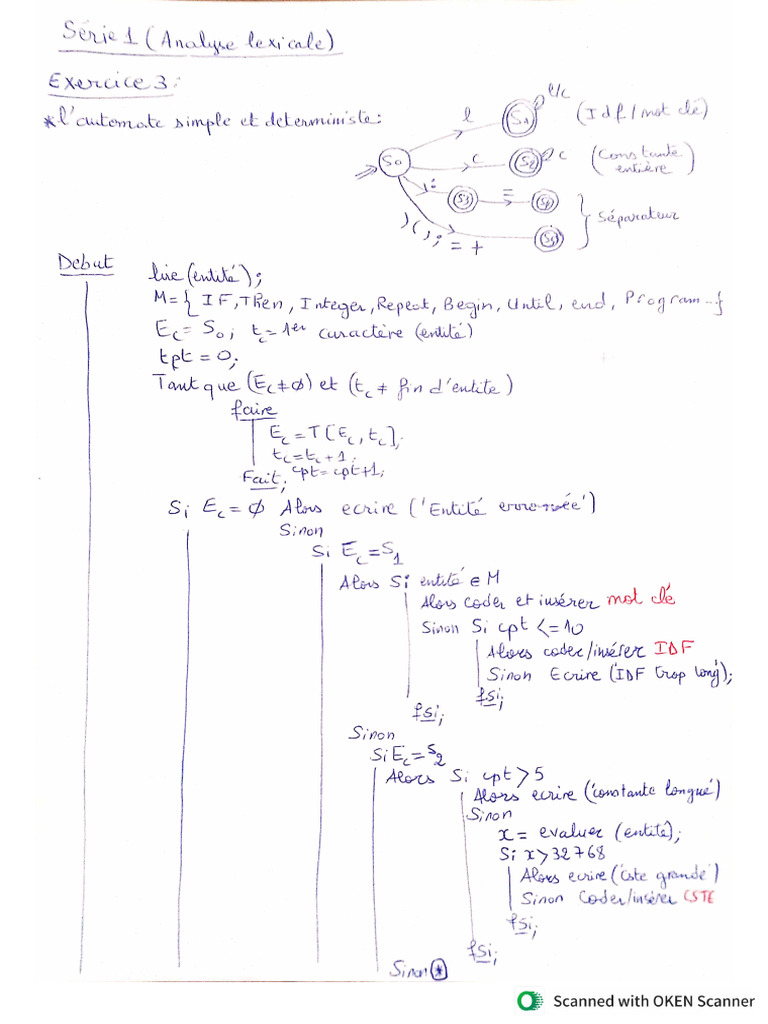 Série 1 (Analyse lexicale)
Exercice 3:
*l'automate simple et deterministe:
l
l/c
S1
(Idf/mot clé)
S0
c
S2
c
(Constante entière)
:
S3
=
S4
Séparateur
) ( , ; = +
S5
Debut
lire (entité);
M={ IF, Then, Integer, Repeat, Begin, Until, end, Program...}
Ec = S0; tc = 1er caractère (entité)
tpt = 0;
Tant que (Ec ≠ ∅) et (tc ≠ fin d'entite)
faire
Ec = T[Ec, tc];
tc = tc + 1;
cpt = cpt+1;
Fait;
Si Ec = ∅ Alors ecrire ('Entité erronnée')
Sinon
Si Ec = S1
Alors Si entité ∈ M
Alors coder et insérer mot clé
Sinon Si cpt <= 10
Alors coder/insérer IDF
Sinon Ecrire (IDF trop long);
fSi;
fSi;
Sinon
Si Ec = S2
Alors Si cpt > 5
Alors ecrire ('constante longue')
Sinon
x = evaluer (entité);
Si x > 32768
Alors ecrire ('Cste grande')
Sinon Coder/insérer CSTE
fSi;
fSi;
Sinon *
Scanned with OKEN Scanner